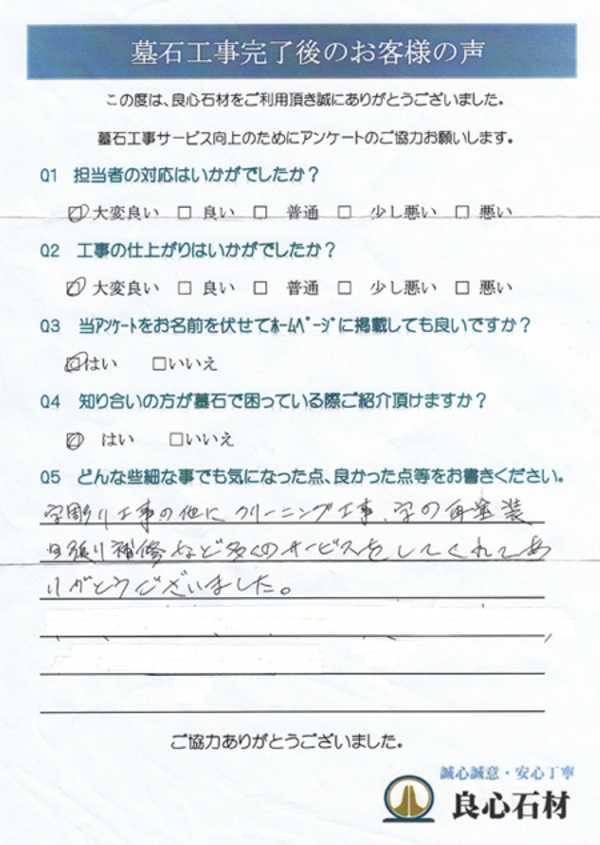 墓石工事完了後のお客様の声
この度は、良心石材をご利用頂き誠にありがとうございました。
墓石工事サービス向上のためにアンケートのご協力お願いします。
Q1 担当者の対応はいかがでしたか？
☑ 大変良い □ 良い □ 普通 □ 少し悪い □ 悪い
Q2 工事の仕上がりはいかがでしたか？
☑ 大変良い □ 良い □ 普通 □ 少し悪い □ 悪い
Q3 当ｱﾝｹｰﾄをお名前を伏せてﾎｰﾑﾍﾟｰｼﾞに掲載しても良いですか？
☑はい □いいえ
Q4 知り合いの方が墓石で困っている際ご紹介頂けますか？
☑ はい □いいえ
Q5 どんな些細な事でも気になった点、良かった点等をお書きください。
字彫り工事の他にクリーニング工事、字の再塗装
目張り補修など多くのサービスをしてくれてあ
りがとうございました。
ご協力ありがとうございました。
誠心誠意・安心丁寧
良心石材